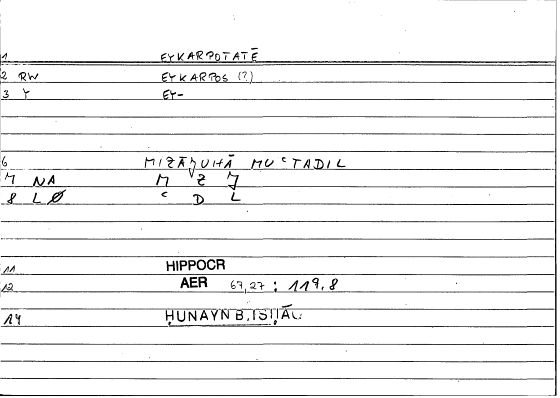 1 EYKARPOTATĒ
2 RW EYKARPOS (?)
3 Y EY-
6 MIZĀǦUHĀ MUʿTADIL
7 NA M Z Ǧ
8 LØ ʿ D L
11 HIPPOCR
12 AER 67,27 : 119,8
14 ḤUNAYN B.ISḤĀQ